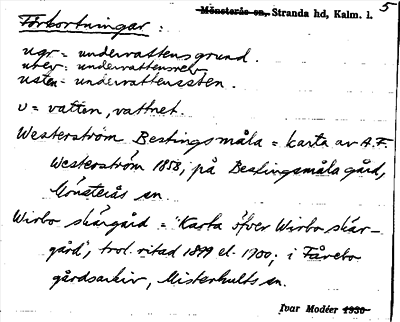 Mönsterås sn, Stranda hd, Kalm. l. 5
Förkortningar:
ugr = undervattensgrund.
urev = undervattensrev
usten = undervattenssten.
v = vatten, vattnet.
Westerström Bestingsmåla = karta av A.F.
Westerström 1858, på Bestingsmåla gård,
Mönsterås sn.
Wirbo skärgård = "Karta öfver Wirbo skär-
gård", trol. ritad 1699 el. 1700; i Fårebo
gårdsarkiv, Misterhults sn.
Ivar Modéer 1930